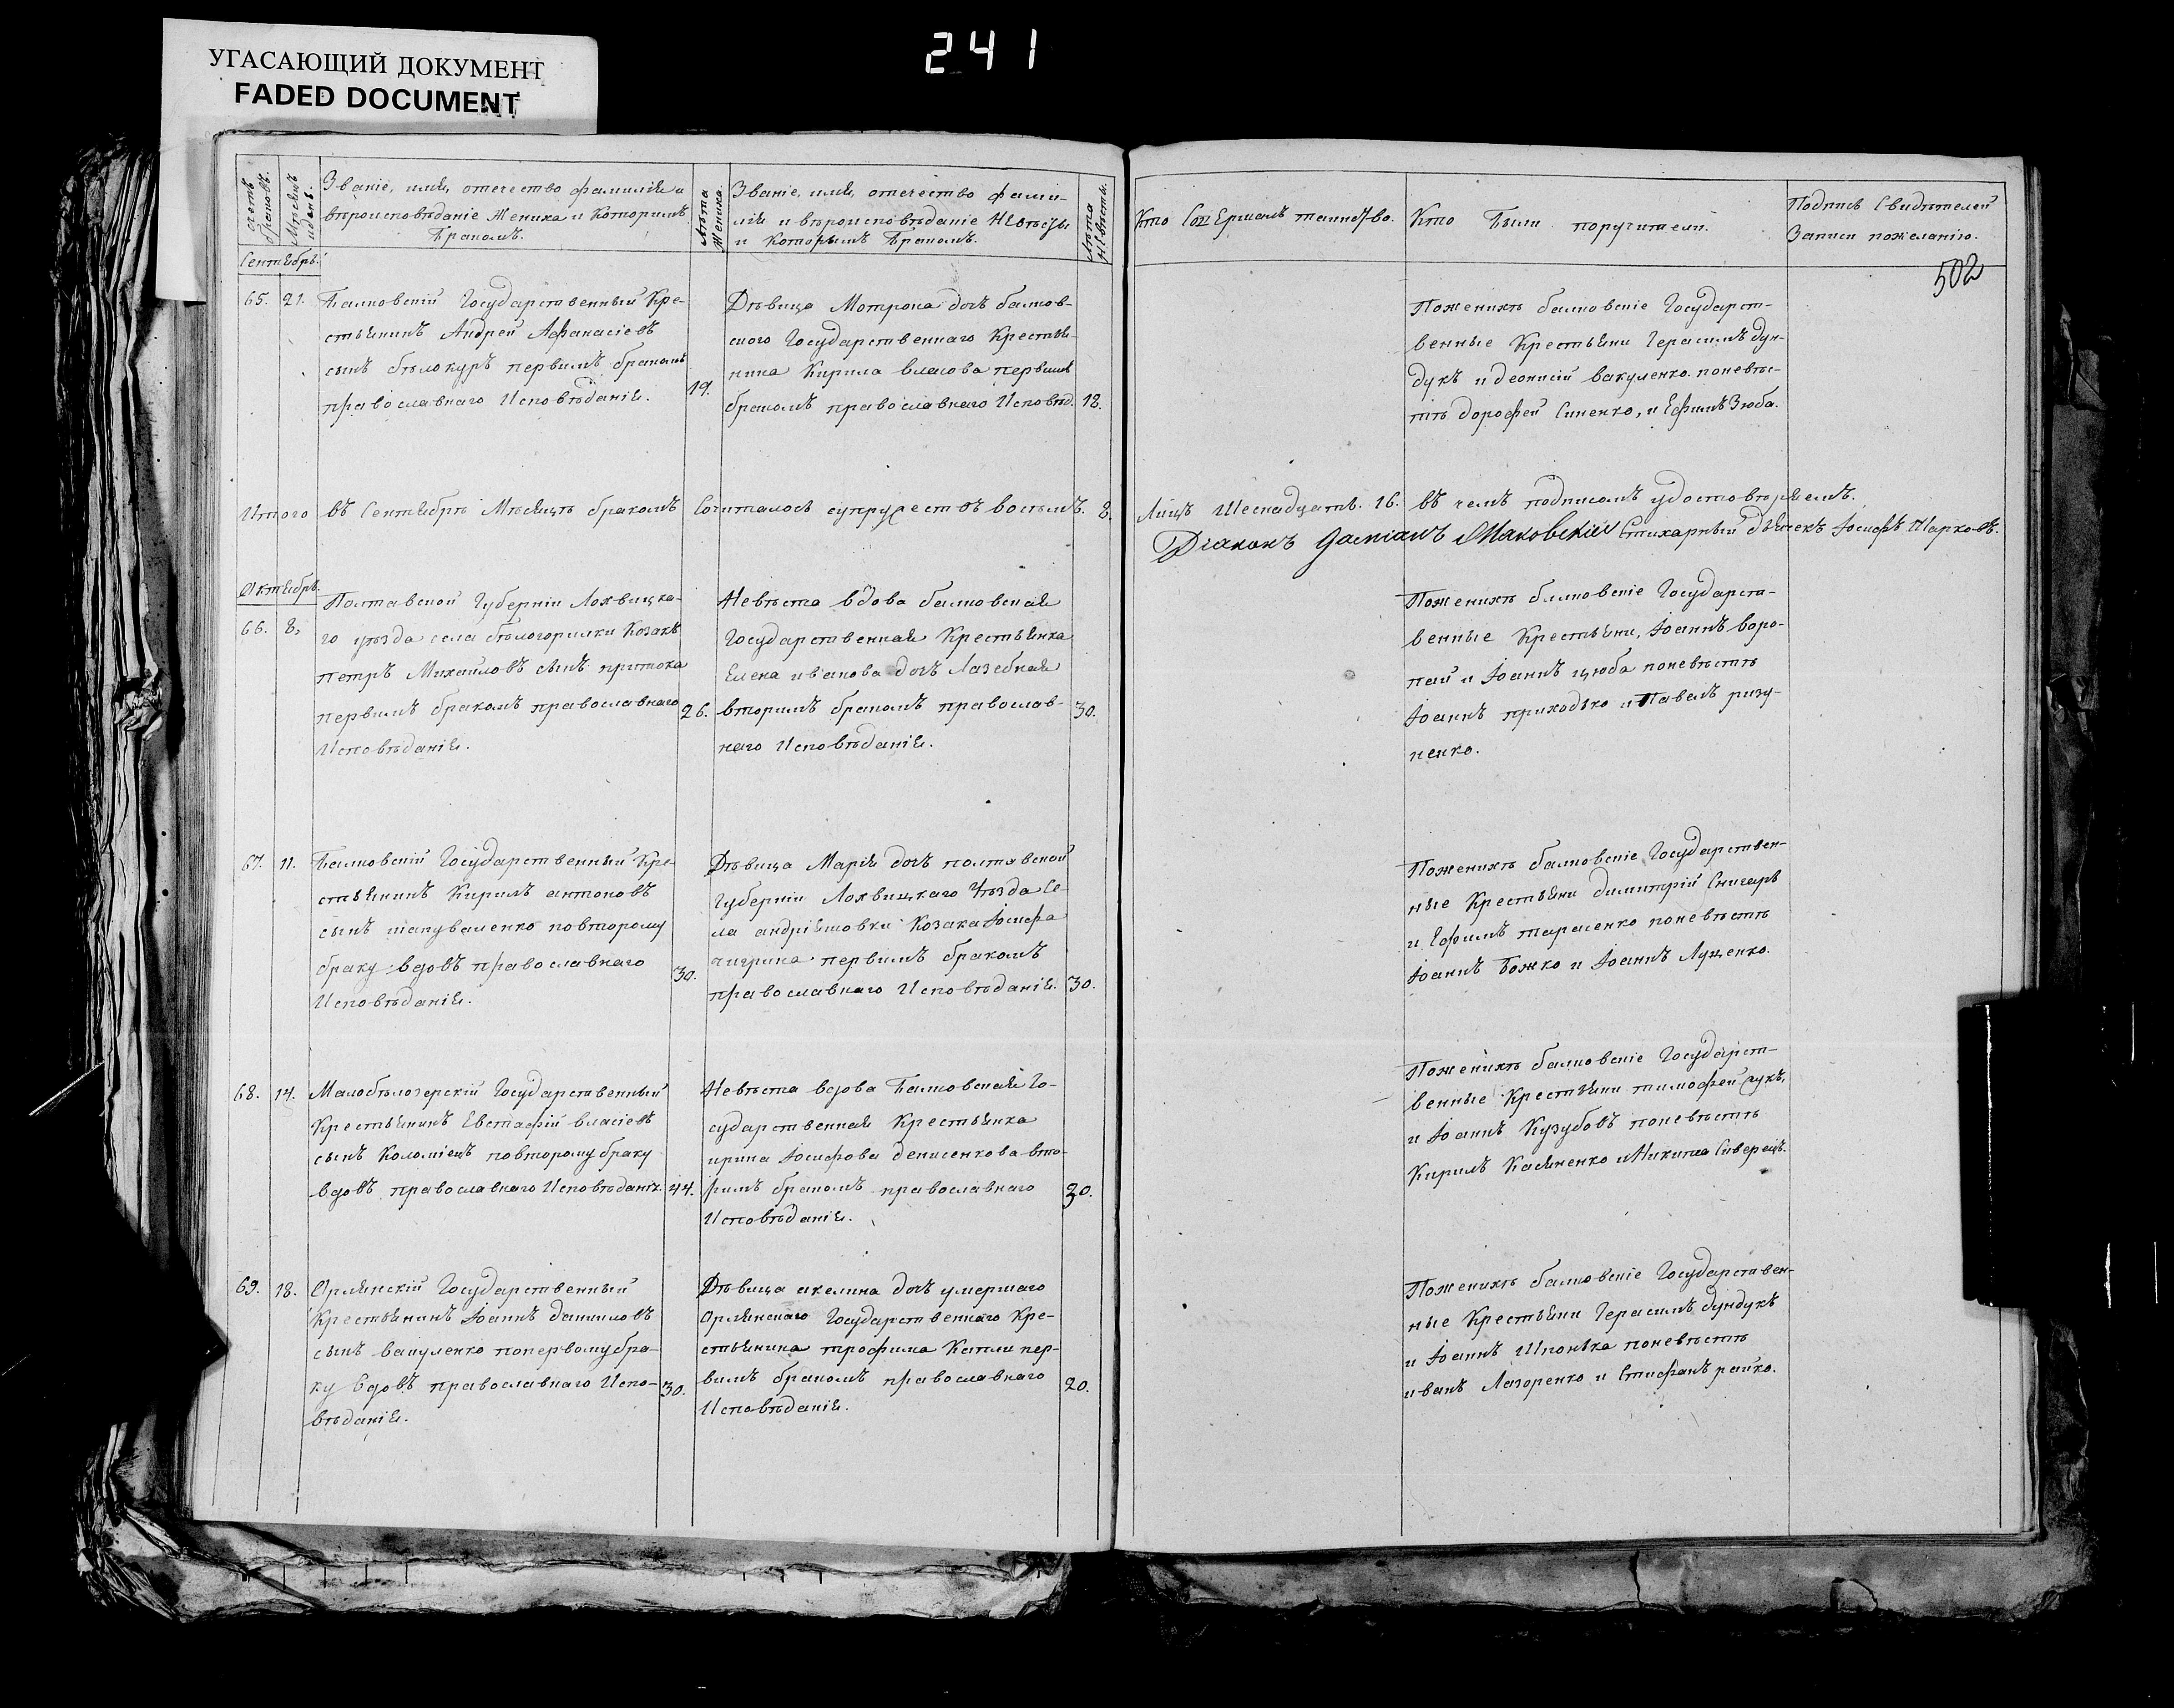 241
УГАСАЮЩИЙ ДОКУМЕНТ
FADED DOCUMENT
Счетъ браковъ.
Мѣсяцъ и день.
Званіе, имя, отечество фамилія и
вѣроисповѣданіе Жениха и Которимъ
Бракомъ.
Лѣта Жениха.
Званіе, имя, отечество фами-
лія и вѣроисповѣданіе Невѣсты
и Которымъ Бракомъ.
Лѣта Невѣсты.
Кто Совершалъ таинство.
Кто Были поручители.
Подпись Свидѣтелей
Записи пожеланію.
502
Сентябрь.
65. 21. Балковскій Государственный Кре-
стьянинъ Андрей Афанасіевъ
сынъ бѣлокуръ первимъ бракомъ
православнаго Исповѣданія.
19.
Дѣвица Мотрона дочь балков-
ского Государственнаго Крестья-
нина Кирила власова первимъ
бракомъ православнаго Исповѣд. 18.
Поженихѣ балковскіе Государст-
венные Крестьяни Герасимъ дун-
дукъ и деонисій вакуленко. поневѣс-
тѣ дорофей Синенко, и Ефимъ Зюба.
Итого въ Сентябрѣ Мѣсяцѣ бракомъ Сочиталось супружествъ восемъ. 8.
Лицъ Шеснадцать. 16. въ чемъ подписомъ удостовѣряемъ.
Діаконъ Даміанъ Маковскій Стихарный дьячекъ Іосифъ Шарковъ.
Октябрь.
66. 8. Полтавской Губерніи Лохвицка-
го уѣзда села бѣлогорилки Козакъ
петръ Михайловъ сынъ притока
первимъ бракомъ православнаго
Исповѣданія.
26.
Невѣста вдова балковская
Государственная Крестьянка
Елена иванова дочь Лазебная
вторимъ бракомъ православ-
наго Исповѣданія.
30.
Поженихѣ балковскіе Государст-
венные Крестьяни, Іоаннъ воро-
пай и Іоаннъ цюба поневѣстѣ
Іоаннъ приходько и Павелъ ризу-
ненко.
67. 11. Балковскій Государственный Кре-
стьянинъ Кирилъ антоновъ
сынъ шаповаленко повторому
браку вдовъ православнаго
Исповѣданія.
30.
Дѣвица Марія дочь полтавской
Губерніи Лохвицкаго Уѣзда Се-
ла андріяшовки Козака Іосифа
чигрина первимъ бракомъ
православнаго Исповѣданія. 30.
Поженихѣ балковскіе Государствен-
ные Крестьяни димитрій Снигаръ
и Ефимъ тарасенко поневѣстѣ
Іоаннъ Божко и Іоаннъ Луценко.
68. 14. Малобѣлозерскій Государственный
Крестьянинъ Евстафій власіевъ
сынъ Коломіецъ повторому браку
вдовъ православнаго Исповѣданія. 44.
Невѣста вдова Балковская Го-
сударственная Крестьянка
ирина Іосифова денисенкова вто-
римъ бракомъ православнаго
Исповѣданія.
30.
Поженихѣ балковскіе Государст-
венные Крестьяни тимофей гукъ,
и Іоаннъ Кузубовъ поневѣстѣ
Кирилъ Касяненко и Никита Сиверецъ.
69. 18. Орлянскій Государственный
Крестьянинъ Іоаннъ даниловъ
сынъ вакуленко попервому бра-
ку вдовъ православнаго Испо-
вѣданія.
30.
Дѣвица акелина дочь умершаго
Орлянскаго Государственнаго Кре-
стьянина трофима Капли пер-
вимъ бракомъ православнаго
Исповѣданія.
20.
Поженихѣ балковскіе Государствен-
ные Крестьяни Герасимъ дундукъ
и Іоаннъ Шпонька поневѣстѣ
иванъ Лазоренко и Стифанъ райко.